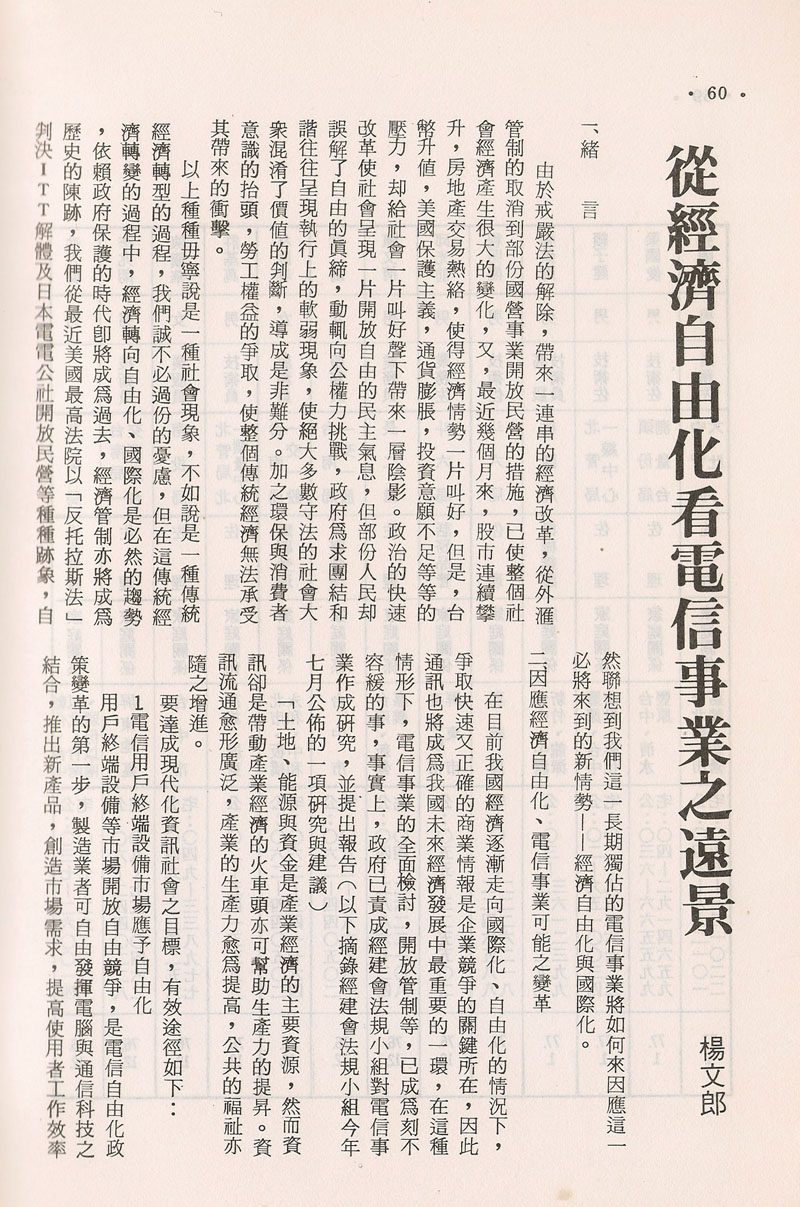 • 60 •
從經濟自由化看電信事業之遠景
楊文郎
一、緒　言
由於戒嚴法的解除，帶來一連串的經濟改革，從外滙
管制的取消到部份國營事業開放民營的措施，已使整個社
會經濟產生很大的變化，又，最近幾個月來，股市連續攀
升，房地產交易熱絡，使得經濟情勢一片叫好，但是，台
幣升值，美國保護主義，通貨膨脹，投資意願不足等等的
壓力，却給社會一片叫好聲下帶來一層陰影。政治的快速
改革使社會呈現一片開放自由的民主氣息，但部份人民却
誤解了自由的眞締，動輒向公權力挑戰，政府爲求團結和
諧往往呈現執行上的軟弱現象，使絕大多數守法的社會大
衆混淆了價值的判斷，導成是非難分。加之環保與消費者
意識的抬頭，勞工權益的爭取，使整個傳統經濟無法承受
其帶來的衝擊。
以上種種毋寧說是一種社會現象，不如說是一種傳統
經濟轉型的過程，我們誠不必過份的憂慮，但在這傳統經
濟轉變的過程中，經濟轉向自由化、國際化是必然的趨勢
，依賴政府保護的時代卽將成爲過去，經濟管制亦將成爲
歷史的陳跡，我們從最近美國最高法院以「反托拉斯法」
判決ＩＴＴ解體及日本電電公社開放民營等種種跡象，自
然聯想到我們這一長期獨佔的電信事業將如何來因應這一
必將來到的新情勢——經濟自由化與國際化。
二因應經濟自由化、電信事業可能之變革
在目前我國經濟逐漸走向國際化、自由化的情況下，
爭取快速又正確的商業情報是企業競爭的關鍵所在，因此
通訊也將成爲我國未來經濟發展中最重要的一環，在這種
情形下，電信事業的全面檢討，開放管制等，已成爲刻不
容緩的事，事實上，政府已責成經建會法規小組對電信事
業作成研究，並提出報告（以下摘錄經建會法規小組今年
七月公佈的一項研究與建議）
「土地、能源與資金是產業經濟的主要資源，然而資
訊卻是帶動產業經濟的火車頭亦可幫助生產力的提昇。資
訊流通愈形廣泛，產業的生產力愈爲提高，公共的福祉亦
隨之增進。
要達成現代化資訊社會之目標，有效途徑如下：
1電信用戶終端設備市場應予自由化
用戶終端設備等市場開放自由競爭，是電信自由化政
策變革的第一步，製造業者可自由發揮電腦與通信科技之
結合，推出新產品，創造市場需求，提高使用者工作效率